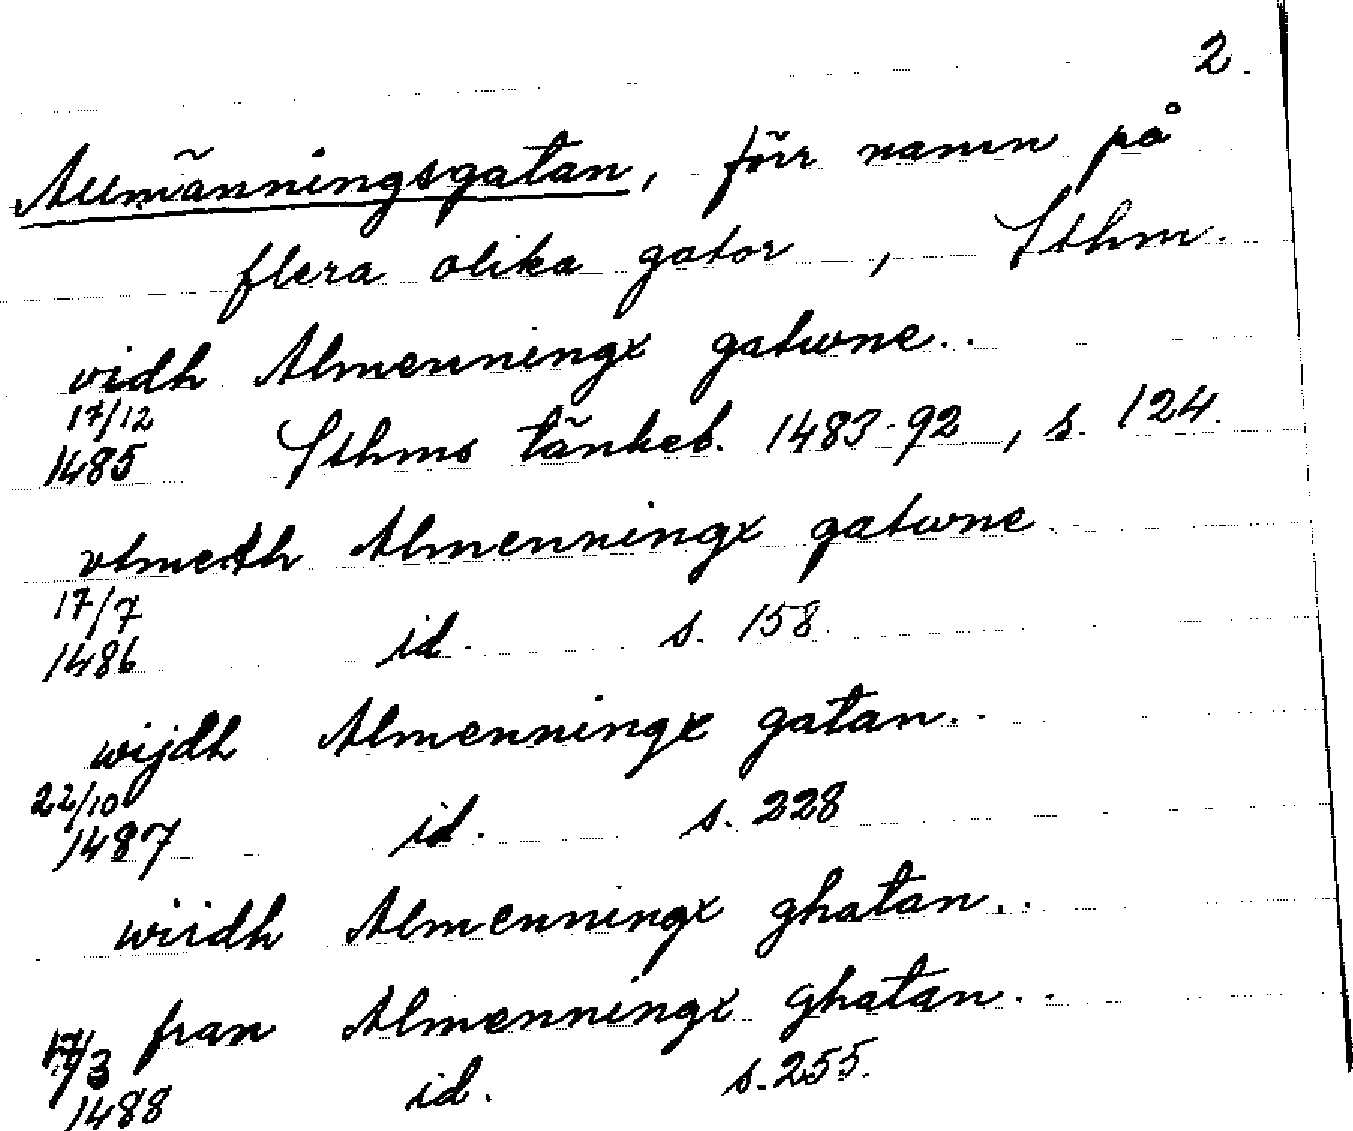 2.
Allmänningsgatan, förr namn på
flera olika gator , Sthm.
vidh Almenningx gatwne..
17/12
1485 Sthms tänkeb. 1483-92, s. 124.
vtmedh Almenningx gatwne
17/7
1486 id. s. 158.
wijdh Almenningx gatan..
22/10
1487 id. s. 228
wiidh Almenningx ghatan..
fran Almenningx ghatan..
17/3
1488 id. s. 255.